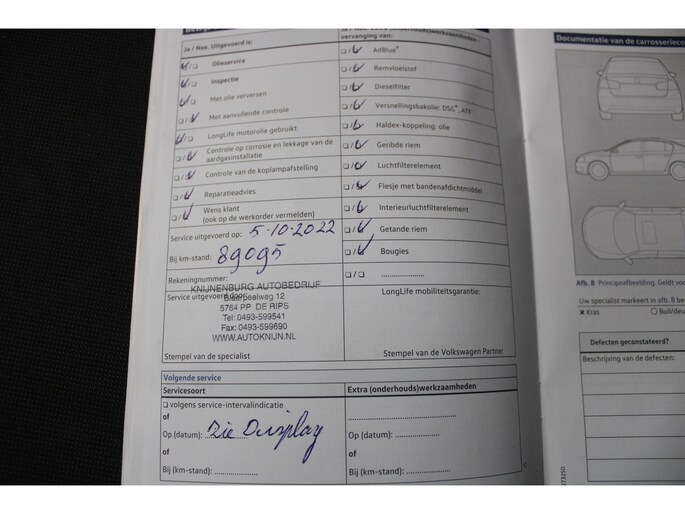 Ja / Nee. Uitgevoerd is:
Olieservice
Inspectie
Met olie verversen
Met aanvullende controle
LongLife motorolie gebruikt
Controle op corrosie en lekkage van de
aardgasinstallatie
Controle van de koplampafstelling
Reparatieadvies
Wens klant
(ook op de werkorder vermelden)
Service uitgevoerd op: 5-10-2022
Bij km-stand: 89095
Rekeningnummer:
KNIJNENBURG AUTOBEDRIJF
Service uitgevoerd door:
5764 PP DE RIPS
Tel: 0493-599541
Fax: 0493-599690
WWW.AUTOKNIJN.NL
Stempel van de specialist
(onderhouds)werkzaamheden -
vervanging van:
AdBlue®
Remvloeistof
Dieselfilter
Versnellingsbakolie: DSG®, ATF
Haldex-koppeling: olie
Geribde riem
Luchtfilterelement
Flesje met bandenafdichtmiddel
Interieurluchtfilterelement
Getande riem
Bougies
LongLife mobiliteitsgarantie:
Stempel van de Volkswagen Partner
Volgende service
Servicesoort
volgens service-intervalindicatie
of
Op (datum): Zie Display
of
Bij (km-stand):
Extra (onderhouds)werkzaamheden
of
Op (datum):
of
Bij (km-stand):
Documentatie van de carrosserie
Afb. 8 Principeafbeelding. Geldt voor
Uw specialist markeert in afb. 8
x Kras
Defecten geconstateerd?
Beschrijving van de defecten: